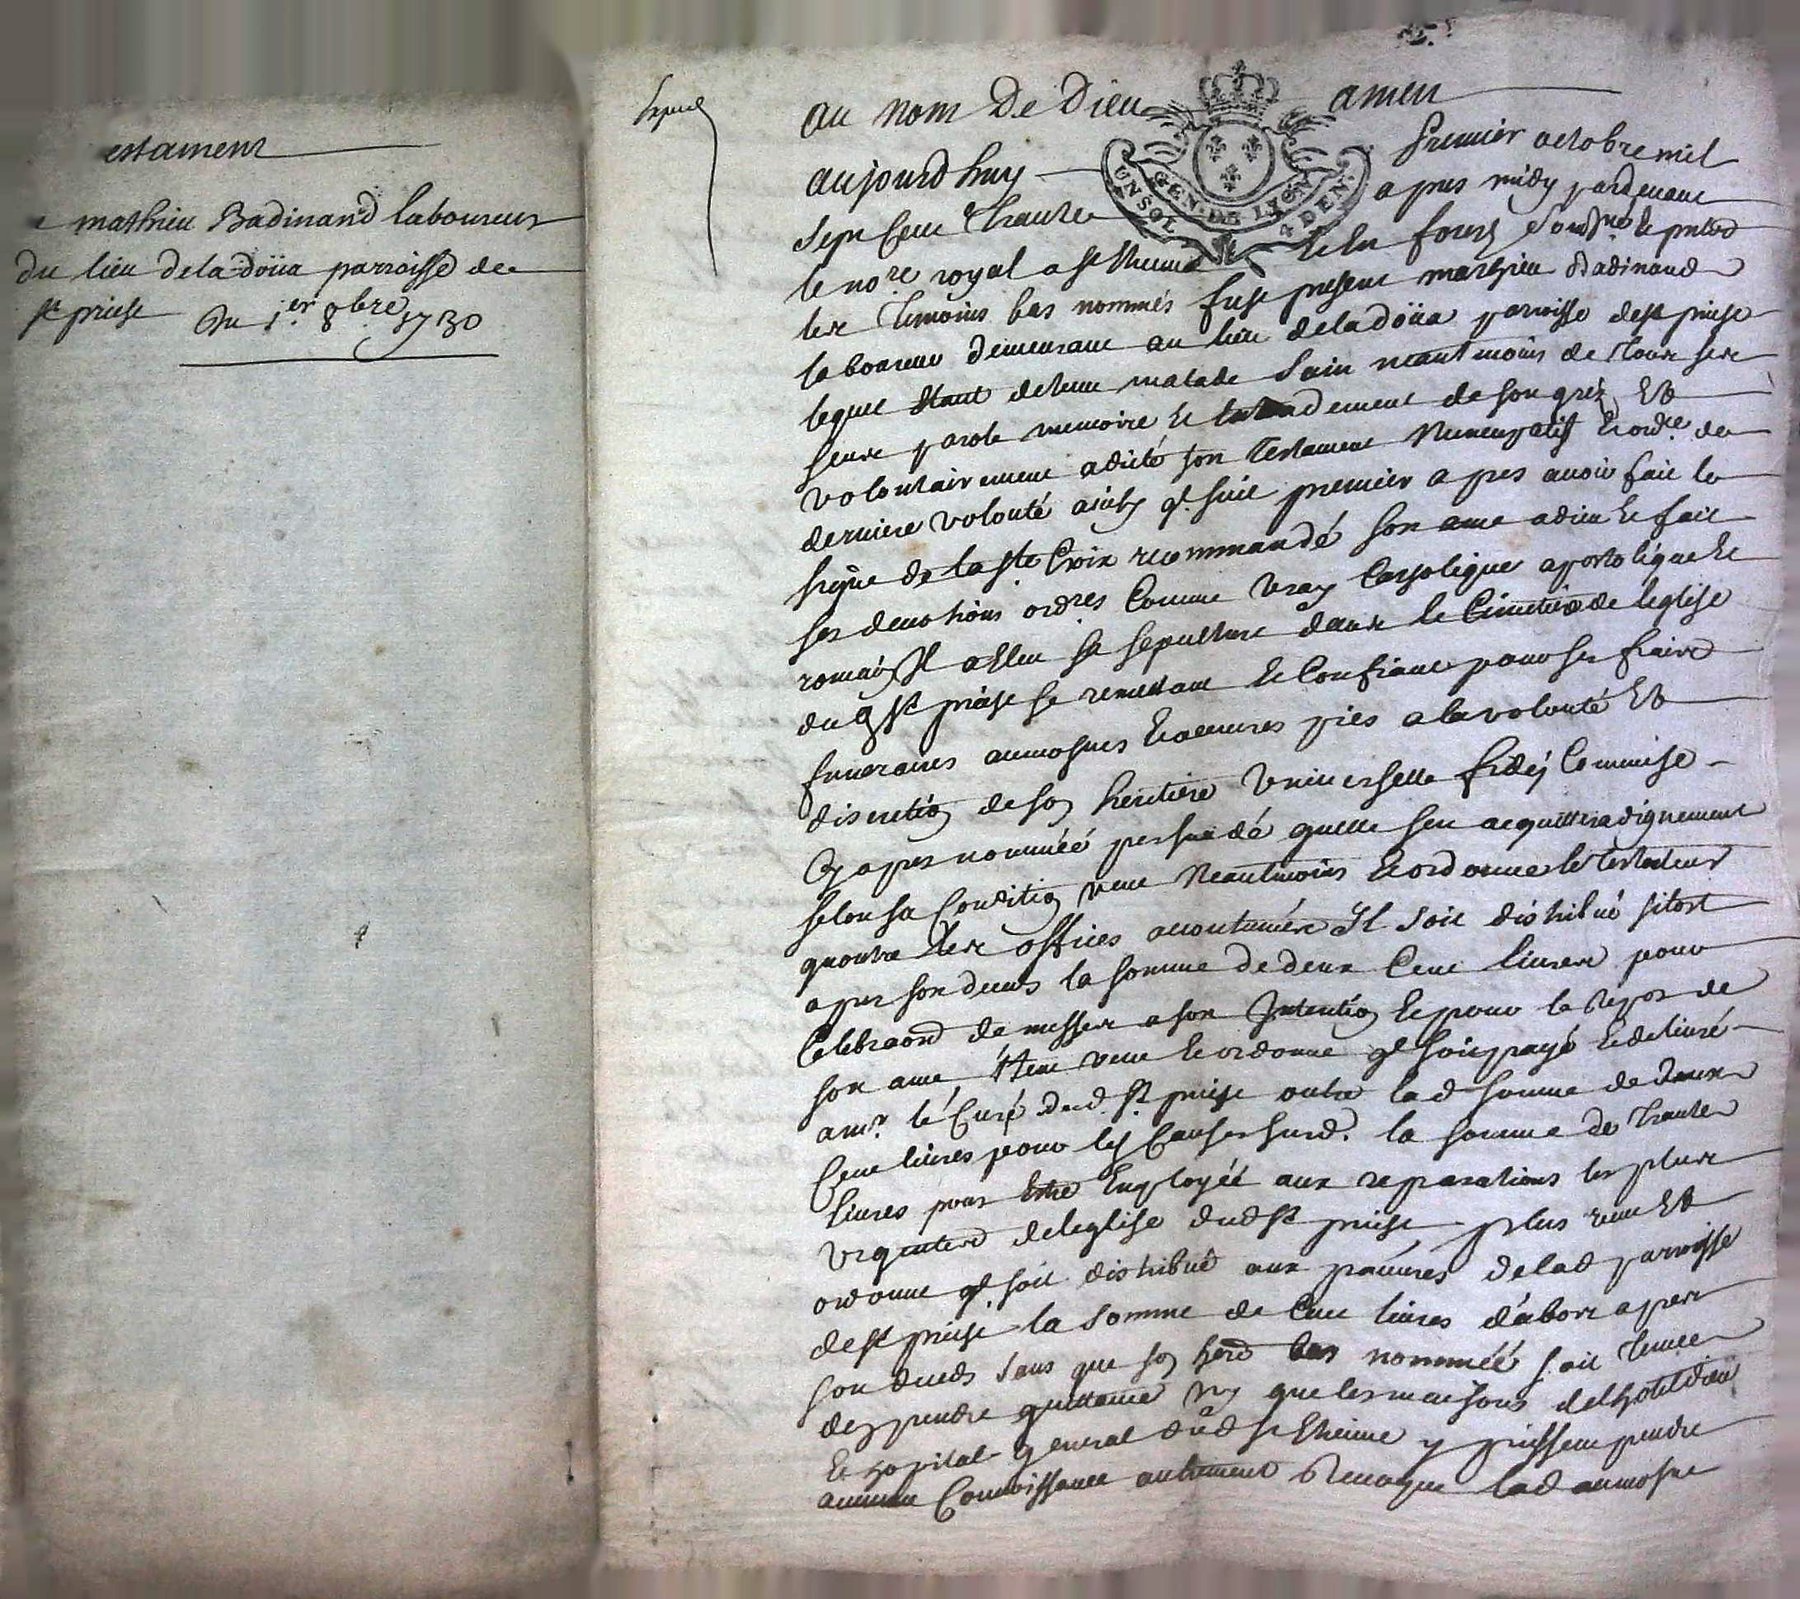 estament
mathieu Badinand laboureur
du lieu de la doüa parroisse de
st priest
Du 1er 8bre 1730
au nom De Dieu amen
GEN. DE LYON
UN SOL 4 DEN.
aujourdhuy premier octobre mil
sept cent trante apres midy pardevant
le nore royal a st Etienne en forest soussne Et presents
les temoins bas nommés fust present mathieu Badinand
laboureur demeurant au lieu de la doüa parroisse de st priest
lequel Etant detenu malade sain neantmoins de tous ses
sens parole memoire et entendement de son gréz Et
volontairement a dicté son testament Nuncupatif Et ordre de
derniere volonté ainsy q. suit premier apres avoir fait le
signe de la ste Croix recommandé son ame a dieu et fait
ses devotions ordres Comme vray Catholique apostolique Et
romain Il a Eleu sa sepulture dans le Cimetiere de leglise
dud st priest se remettant Et Confiant pour ses fraix
funeraires aumosnes Et oeuvres pies a la volonté Et
discretion de son heritiere Universelle fideÿ Commise
Cy apres nommée persuadé quelle sen acquittera dignement
selon sa Condition veut Neantmoins Et ordonne le testateur
quoutre les offices accoutumés Il soit distribué sitost
apres son deces la somme de deux Cent livres pour
Celebraon de messes a son Intention Et pour le repos de
son ame, Item veut Et ordonne q. soit payé Et delivré
a mr. le Curé dud. st. priest outre lad somme de deux
Cent livres pour les Causes susd. la somme de trante
livres pour Estre Employée aux reparations les plus
urgentes de leglise dud st priest plus veut Et
ordonne q. soit distribué aux pauvres de lad parroisse
de st priest la somme de Cent livres dabors apres
son deces sans que son herd bas nommée soit tenue
den prendre quittance ny que les maisons de lhotel dieu
Et hopital general dud st Etienne y puissent prendre
aucune Connoissance autrement revoque lad aumosne